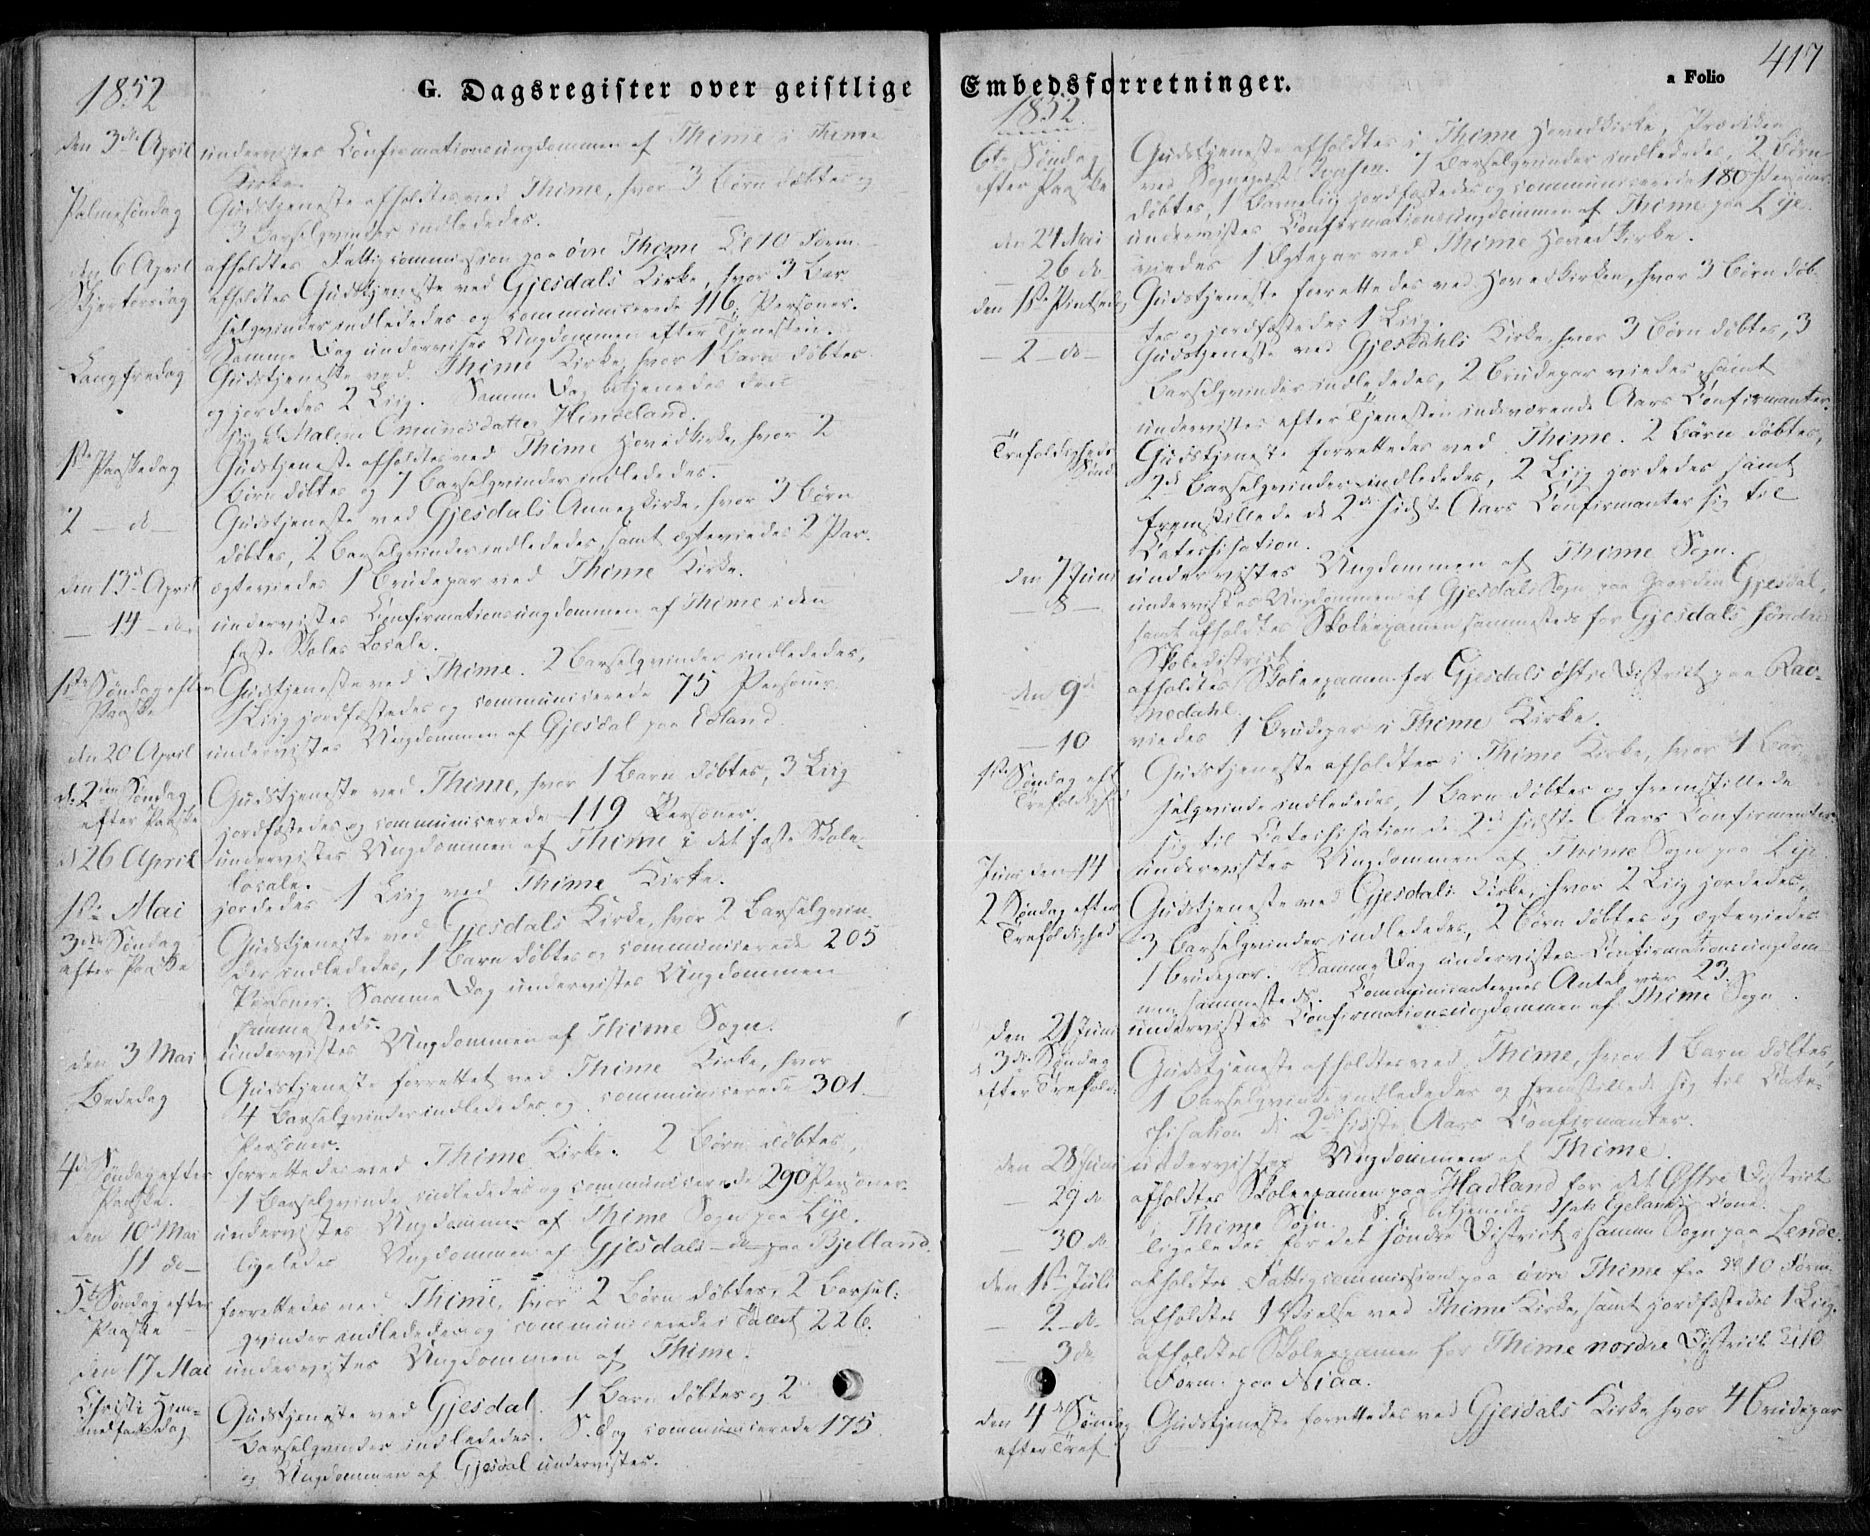 G. Dagsregister over geistlige Embedsforretninger.
a Folio
417
1852
den 3die April undervistes Confirmationsungdommen af Thime i Thime
Kirke.
Palmesøndag Gudstjeneste afholdtes ved Thime, hvor 3 Børn døbtes og
3 Barselqvinder indlededes.
den 6 April afholdtes Fattigcommission paa øvre Thime Kl 10 Form.
Skjertorsdag afholdtes Gudstjeneste ved Gjesdals Kirke, hvor 3 Bar-
selqvinder indlededes og communicerede 116 Personer.
Samme Dag undervistes Ungdommen efter Tjenesten.
Langfredag Gudstjeneste ved Thime Kirke, hvor 1 Barn døbtes
og jordedes 2 Liig. Samme Dag betjenedes den
syge Malene Omundsdatter
1ste Paaskedag Gudstjeneste afholdtes ved Thime Hovedkirke, hvor 2
Børn døbtes og 7 Barselqvinder indlededes.
2 - do - Gudstjeneste ved Gjesdals Annexkirke, hvor 3 Børn
døbtes, 2 Barselqvinder indlededes, samt ægteviedes 2 Par.
den 13de April ægteviedes 1 Brudepar ved Thime Kirke.
- 14 - do - undervistes Confirmationsungdommen af Thime i den
faste Skoles Locale.
1ste Søndag efter Gudstjeneste ved Thime. 2 Barselqvinder indlededes,
Paaske 1 Liig jordfæstedes og communicerede 75 Personer.
den 20 April undervistes Ungdommen af Gjesdal paa Edland.
d. 2den Søndag Gudstjeneste ved Thime, hvor 1 Barn døbtes, 3 Liig
efter Paaske jordfæstedes og communicerede 119 Personer.
d. 26 April undervistes Ungdommen af Thime i det faste Skole-
locale.
1ste Mai jordedes 1 Liig ved Thime Kirke.
3die Søndag Gudstjeneste ved Gjesdals Kirke, hvor 2 Barselqvin-
efter Paaske der indlededes, 1 Barn døbtes og communicerede 205
Personer. Samme Dag undervistes Ungdommen
sammesteds.
den 3 Mai undervistes Ungdommen af Thime Sogn.
Bededag Gudstjeneste forrettet ved Thime Kirke, hvor
4 Barselqvinder indlededes og communicerede 301
Personer.
4de Søndag efter forrettedes ved Thime Kirke. 2 Børn døbtes,
Paaske. 1 Barselqvinde indlededes og communicerede 290 Personer.
den 10de Mai undervistes Ungdommen af Thime Sogn paa Lye.
- 11 do - ligeledes Ungdommen af Gjesdals - do - paa Bjelland.
5te Søndag efter forrettedes ved Thime, hvor 2 Børn døbtes, 2 Barsel-
Paaske qvinder indlededes og communicerede i Tallet 226.
den 17 Mai undervistes Ungdommen af Thime.
Christi Him- Gudstjeneste ved Gjesdal. 1 Barn døbtes og 2
melfartsdag Barselqvinder indlededes. S. Dag communicerede 175
og Ungdommen af Gjesdal undervistes.
1852.
6te Søndag Gudstjeneste afholdtes i Thime Hovedkirke, Prædiken
efter Paaske ved Sognepræst 7 Barselqvinder indlededes, 2 Børn
døbtes, 1 Barnelig jordfæstedes og communicerede 180 Personer.
den 24 Mai undervistes Confirmationsungdommen af Thime paa Lye.
26 do viedes 1 Ægtepar ved Thime Hovedkirke.
den 1ste Pintsedag Gudstjeneste forrettedes ved Hovedkirken, hvor 3 Børn døb-
tes og jordfæstedes 1 Liig.
- 2 - do - Gudstjeneste ved Gjesdahls Kirke hvor 3 Børn døbtes, 3
Barselqvinder indlededes, 2 Brudepar viedes samt
undervistes efter Tjenesten indeværende Aars Confirmanter.
Trefoldigheds Gudstjeneste forrettedes ved Thime. 2 Børn døbtes,
Sønd. 2de Barselqvinder indlededes, 2 Liig jordedes samt
fremstillede de 2de sidste Aars Confirmanter sig til
Catechisation.
den 7 Juni undervistes Ungdommen af Thime Sogn.
- 8 - undervistes Ungdommen af Gjesdals Sogn paa Gaarden Gjesdal,
samt afholdtes Skoleexamen sammesteds for Gjesdals søndre
Skoledistrict.
den 9de afholdtes Skoleexamen for Gjesdals østre District paa Rav-
nedahl.
- 10 viedes 1 Brudepar i Thime Kirke.
1ste Søndag eft. Gudstjeneste afholdtes i Thime Kirke, hvor 1 Bar-
Trefoldighd selqvinde indlededes, 1 Barn døbtes og fremstillede
sig til Catechisation de 2de sidste Aars Confirmanter.
Juni den 14 undervistes Ungdommen af Thime Sogn paa Lye.
2 Søndag efter Gudstjeneste ved Gjesdals Kirke, hvor 2 Liig jordedes,
Trefoldighed 3 Barselqvinder indlededes, 2 Børn døbtes og ægteviedes
1 Brudepar. Samme Dag undervistes Confirmationsungdom-
men sammesteds. Communicanternes Antal var 23.
den 21 Juni undervistes Confirmationsungdommen af Thime Sogn.
d. 3die Søndag Gudstjeneste afholdtes ved Thime, hvor 1 Barn døbtes,
efter Trefoldh. 1 Barselqvinde indlededes og fremstillede sig til Cate-
chisation de 2de sidste Aars Confirmanter.
den 28 Juni undervistes Ungdommen af Thime.
- 29 do afholdtes Skoleexamen paa Haaland for det Østre District
i Thime Sogn. S. D. betjenedes Egelands Kone.
- 30 do ligeledes for det søndre District i samme Sogn paa Lende.
den 1ste Juli afholdtes Fattigcommission paa øvre Thime fra Kl 10 Form.
- 2 - do afholdtes 1 Vielse ved Thime Kirke, samt jordfæstedes 1 Liig.
- 3 do afholdtes Skoleexamen for Thime nordre District Kl 10
Form. paa Niaa.
den 4de Søndag Gudstjeneste forrettedes ved Gjesdals Kirke hvor 4 Brudepar
efter Tref.